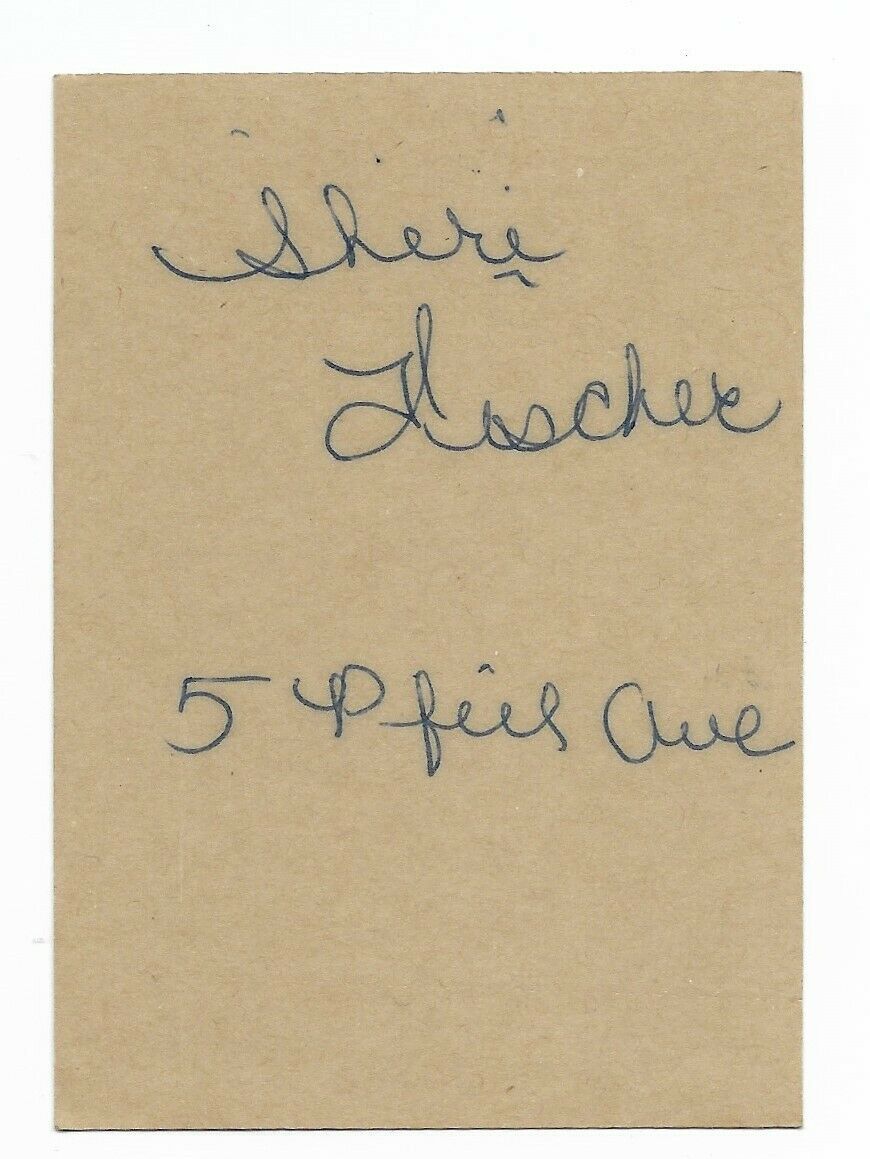 Sheri
Hoscher
5 Pfeil Ave